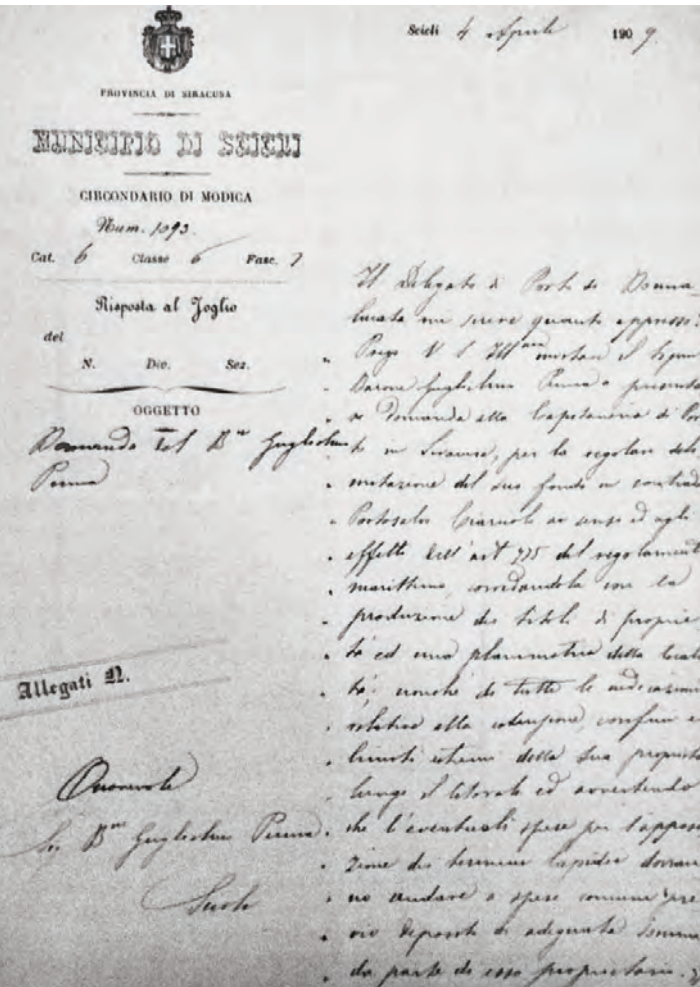 Scicli 4 Aprile 1909
PROVINCIA DI SIRACUSA
MUNICIPIO DI SCICLI
CIRCONDARIO DI MODICA
Num. 1093.
Cat. 6 Classe 6 Fasc. 7
Risposta al Foglio
del
N. Div. Sez.
OGGETTO
Domanda del Bne Guglielmo
Penna
Allegati N.
Onorevole
Sig. Bne Guglielmo Penna
Scicli
Il Delegato di Porto di Donna
lucata mi scrive quanto appresso:
" Prego V S Illma invitare il Signor
" Barone Guglielmo Penna a presenta
" re domanda alla Capitaneria di Por
" to in Siracusa, per la regolare deli
" mitazione del suo fondo in contrada
" Portosalvo ai sensi ed agli
" effetti dell'art 775 del regolamento
" marittimo, corredandola con la
" produzione dei titoli di proprie
" tà ed una planimetria della locali
" tà: nonchè di tutte le indicazioni
" relative alla estenzione, confini e
" limiti esterni della sua proprietà
" lungo il litorale ed avvertendo
" che l'eventuali spese per l'apposi
" zione dei termini lapidei dovran
" no andare a spese comune pre
" vio deposito di adeguata somma
" da parte di esso proprietario. "